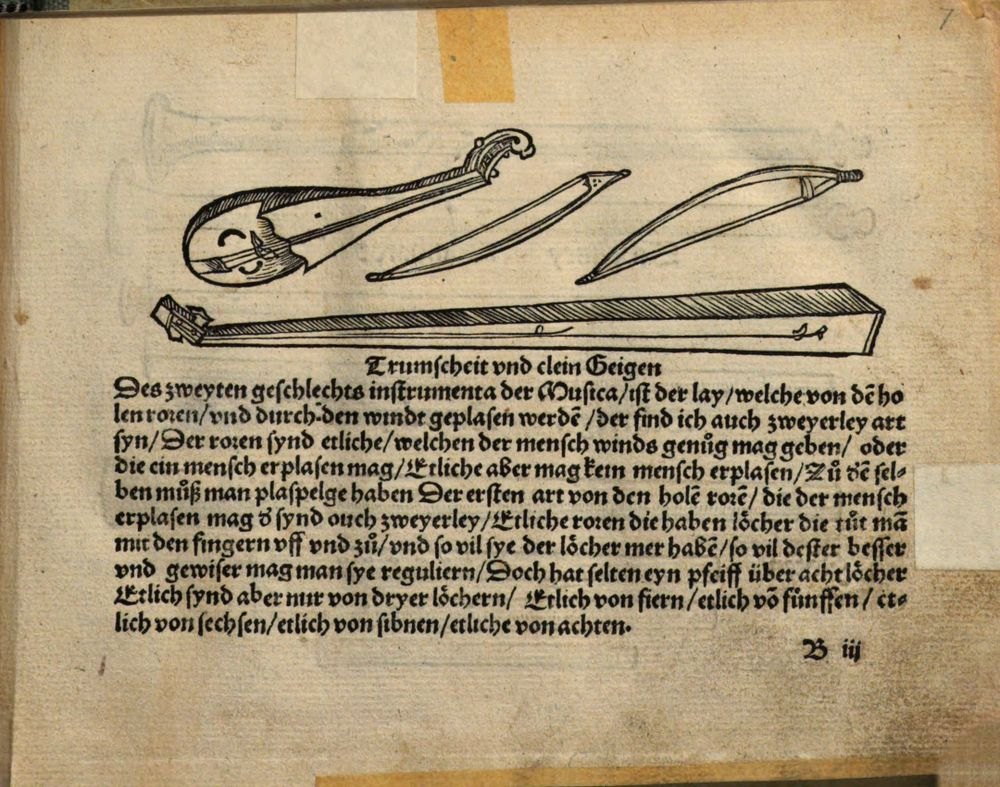 7
Trumscheit vnd clein Geigen
Des zweyten geschlechts instrumenta der Musica/ist der lay/welche von dē ho
len roren/vnd durch den windt geplasen werdē/der find ich auch zweyerley art
syn/Der roren synd etliche/welchen der mensch winds genůg mag geben/ oder
die ein mensch erplasen mag/Etliche aber mag kein mensch erplasen/Zů dē sel-
ben můß man plaspelge haben Der ersten art von den holē rorē/die der mensch
erplasen mag d̕ synd ouch zweyerley/Etliche roren die haben lőcher die tůt mā
mit den fingern vff vnd zů/vnd so vil sye der lőcher mer habē/so vil dester besser
vnd gewiser mag man sye reguliern/Doch hat selten eyn pfeiff über acht lőcher
Etlich synd aber nur von dryer lőchern/ Etlich von fiern/etlich vō fünffen/ et-
lich von sechsen/etlich von sibnen/etliche von achten.
B iij